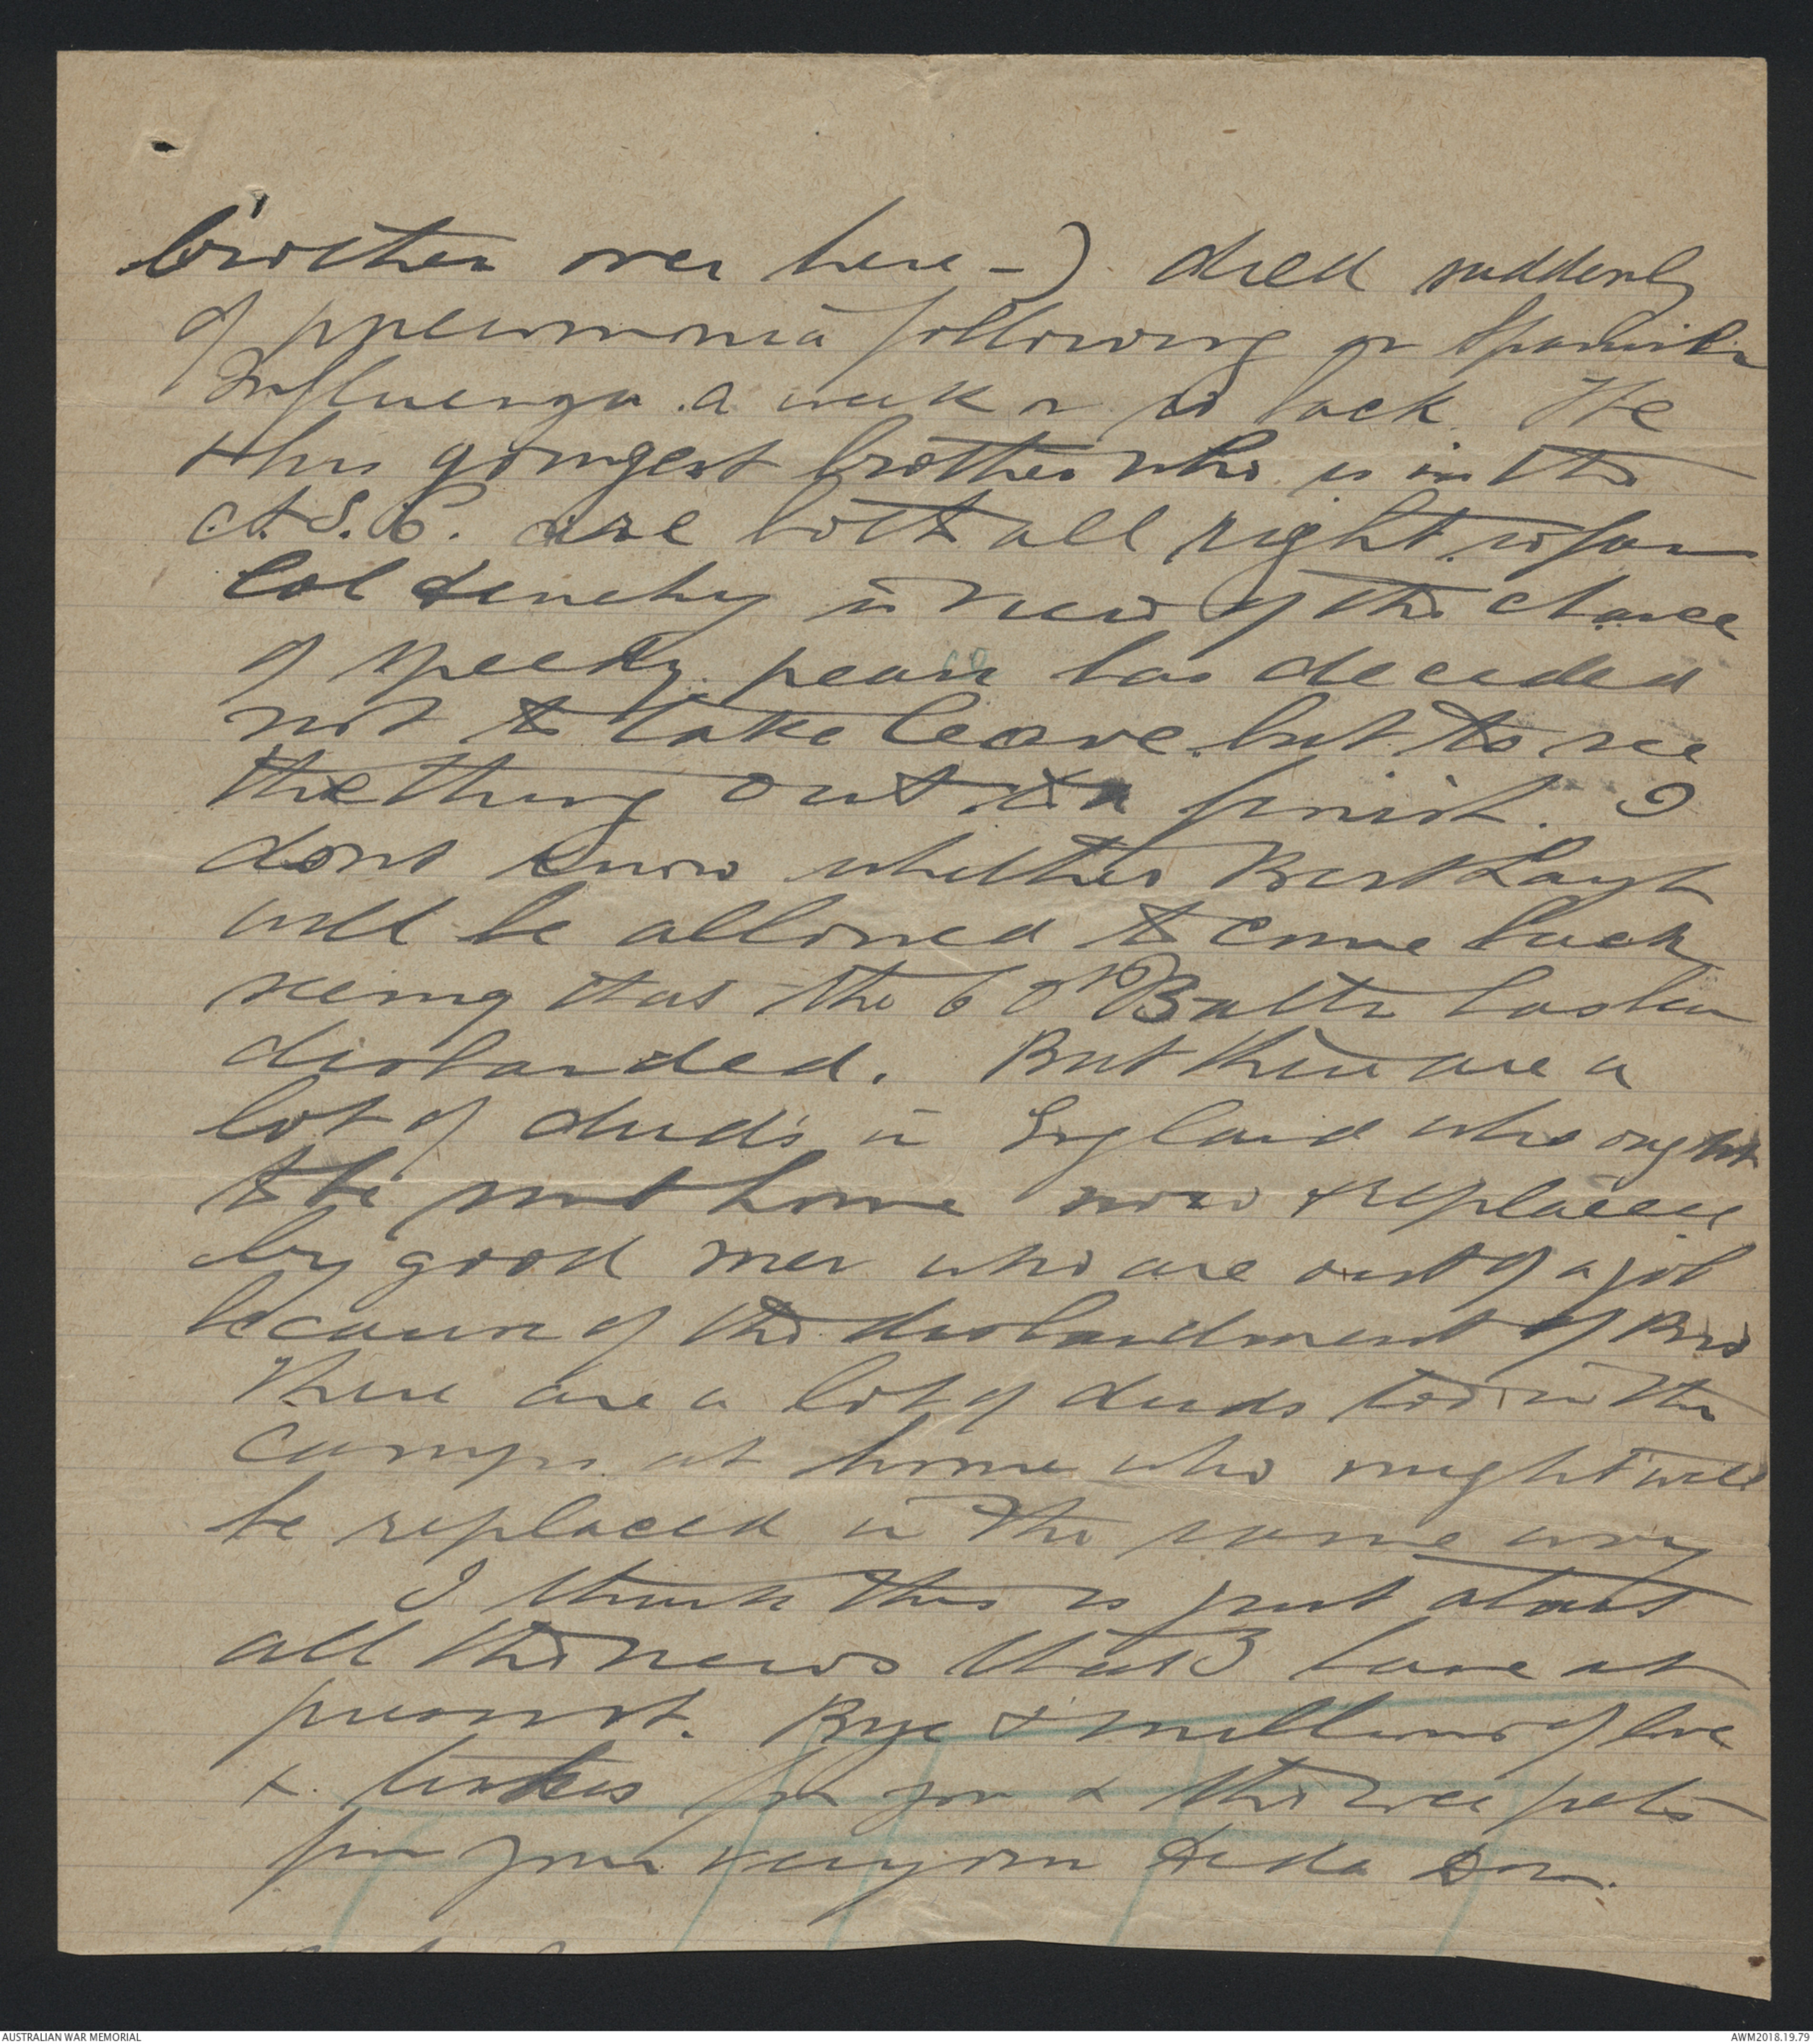 brother over here -). died suddenly
of pneumonia following on Spanish
Influenza a week or so back. He
& his youngest brother who is in the
A.S.C. are both all right so far
Col Denehy in view of the chance
of speedy peace has decided
not to take leave but to see
the thing out to a finish. I
dont know whether Bert Layh
will be allowed to come back
seeing that the 60th Battn has been
disbanded. But there are a
lot of duds in England who ought
to be sent home now & replaced
by good men who are out of a job
because of the disbandment of Bns
There are a lot of duds too in the
camps at home who might well
be replaced in the same way
I think this is just about
all the news that I have at
present. Bye & millions of love
& kisses for you & the wee pets
from your very own Dida
AUSTRALIAN WAR MEMORIAL
AWM2018.19.79